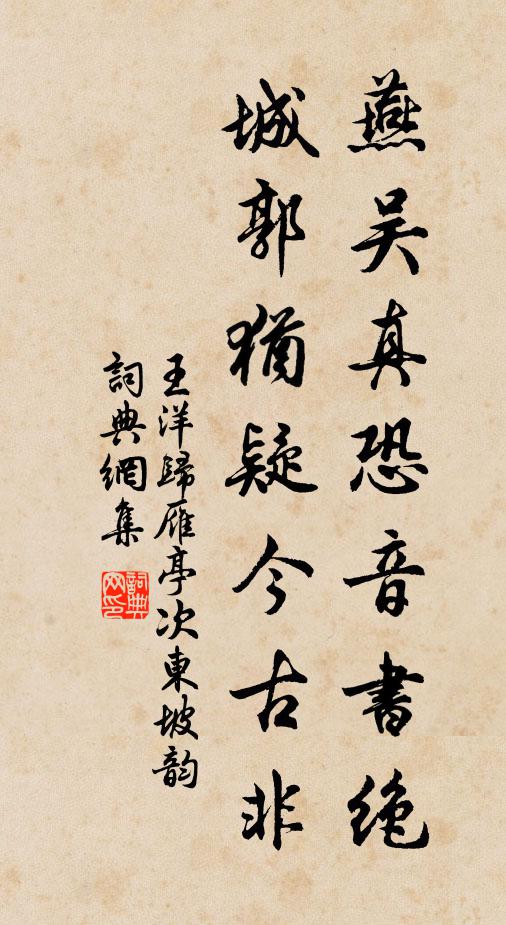 燕吴真恐音書絶
城郭猶疑今古非
王洋歸雁亭次東坡韵
詞典網集
詞典
网印